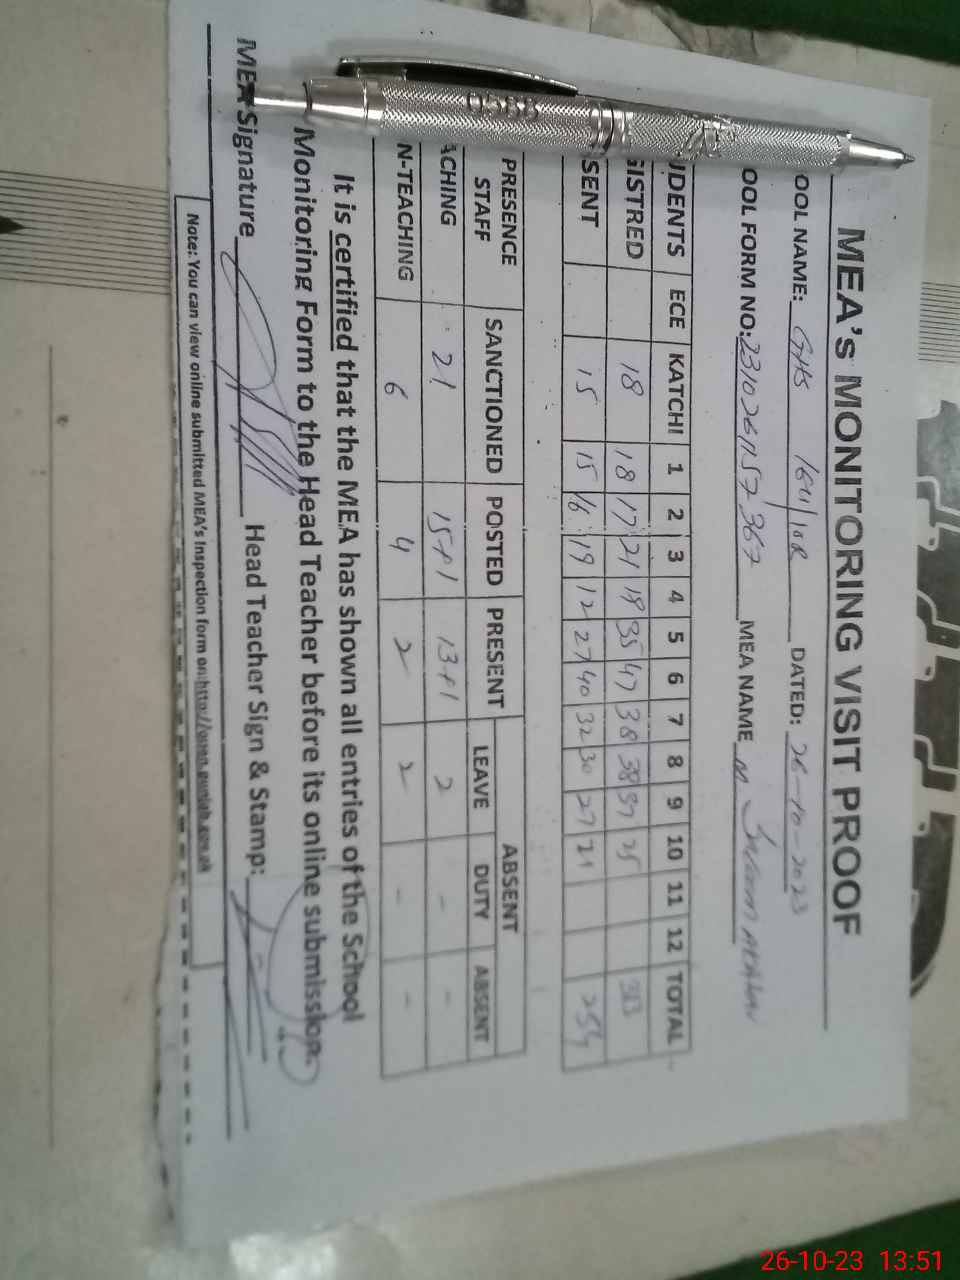 MEA's MONITORING VISIT PROOF
OOL NAME: GHS 164/10R DATED: 26-10-2023
OOL FORM NO: MEA NAME M
UDENTS ECE KATCHI 1 2 3 4 5 6 7 8 9 10 11 12 TOTAL
GISTRED 18 18 17 21 19 35 47 38 38 37 25 313
SENT 15 15 16 19 12 27 40 32 30 27 21 254
PRESENCE STAFF SANCTIONED POSTED PRESENT ABSENT
LEAVE DUTY ABSENT
ACHING 21 15+1 13+1 2 - -
N-TEACHING 6 4 2 2 - -
It is certified that the MEA has shown all entries of the School
Monitoring Form to the Head Teacher before its online submission.
MEA Signature Head Teacher Sign & Stamp:
Note: You can view online submitted MEA's Inspection form on:
0588
26-10-23 13:51